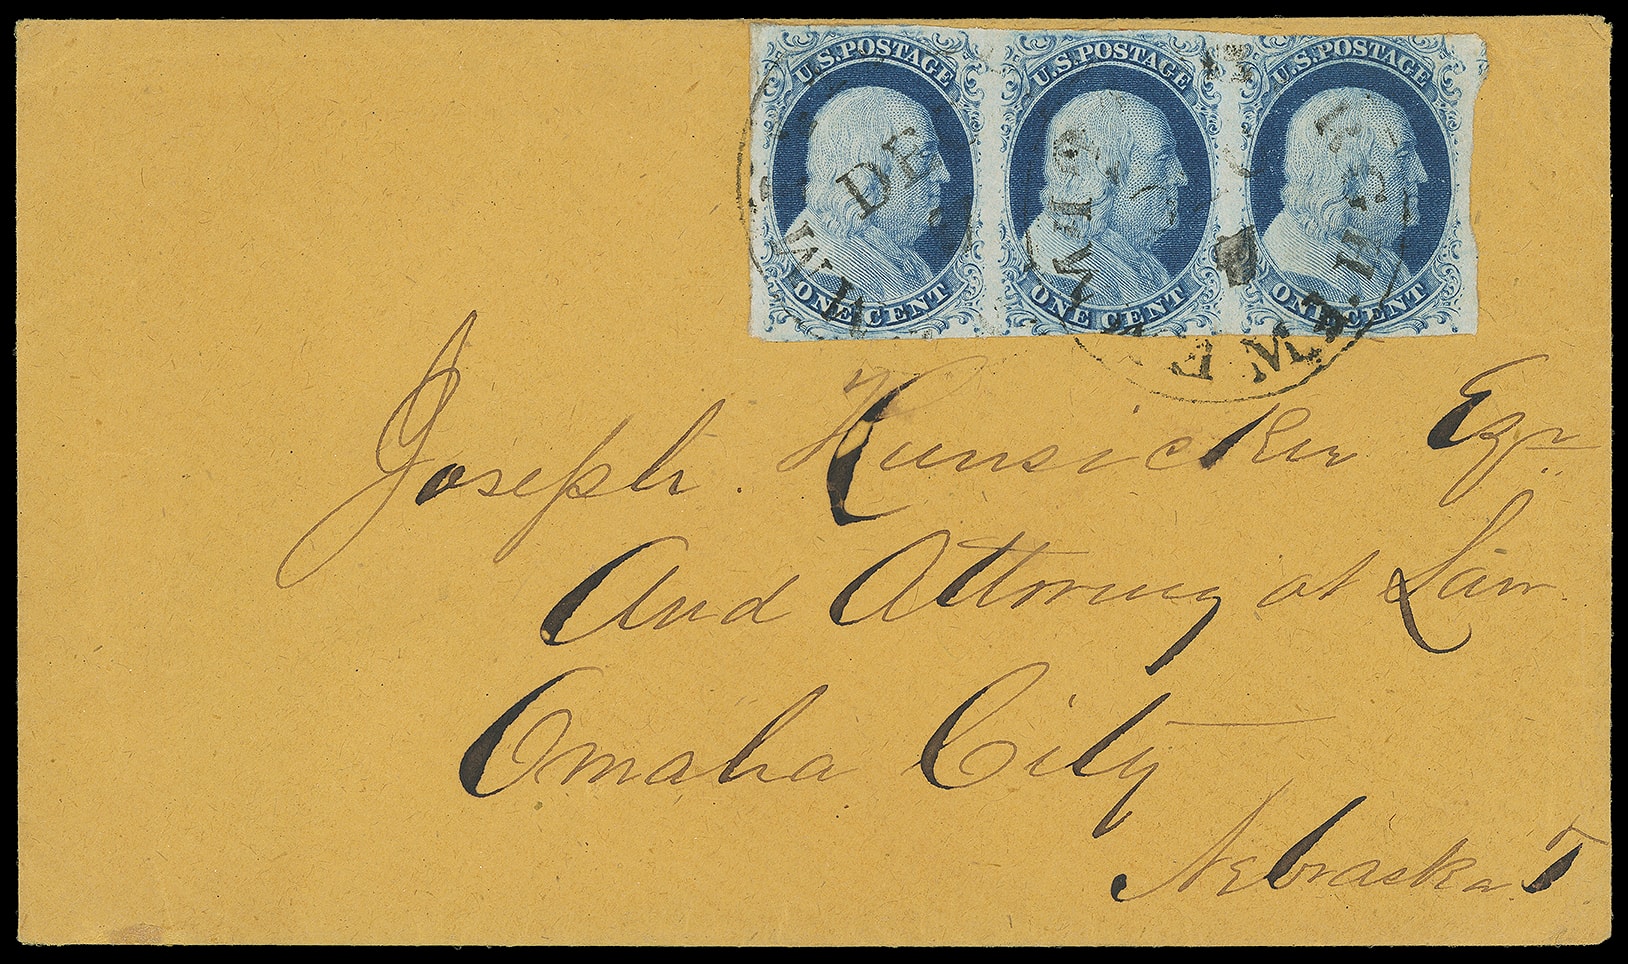 U.S. POSTAGE U.S. POSTAGE U.S. POSTAGE
DE
ONE CENT ONE CENT ONE CENT
Joseph Hunsicker Eqr
And Attorney at Law
Omaha City
Nebraska T